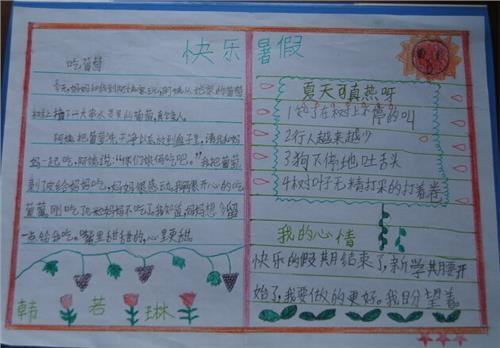 快乐暑假
吃葡萄
今天妈妈和我到阿姨家玩,阿姨从她家的葡萄
树上摘了一大串水灵灵的葡萄,真诱人。
阿姨把葡萄洗干净以后放到盘子里,请我和妈
妈一起吃,阿姨说:“你们俩俩吃吧。”我把葡萄
剥了皮给妈妈吃,妈妈很感动,我们开心的吃
葡萄,刚吃了几个妈妈不吃了,我知道,妈妈想多留
一点给我吃。嘴里甜甜的,心里更甜。
韩若琳
夏天可真热呀
1知了在树上不停的叫
2行人越来越少
3狗不停地吐舌头
4树叶子无精打采的打着卷
我的心情
快乐的假期结束了,新学期要开
始了,我要做的更好。我盼望着